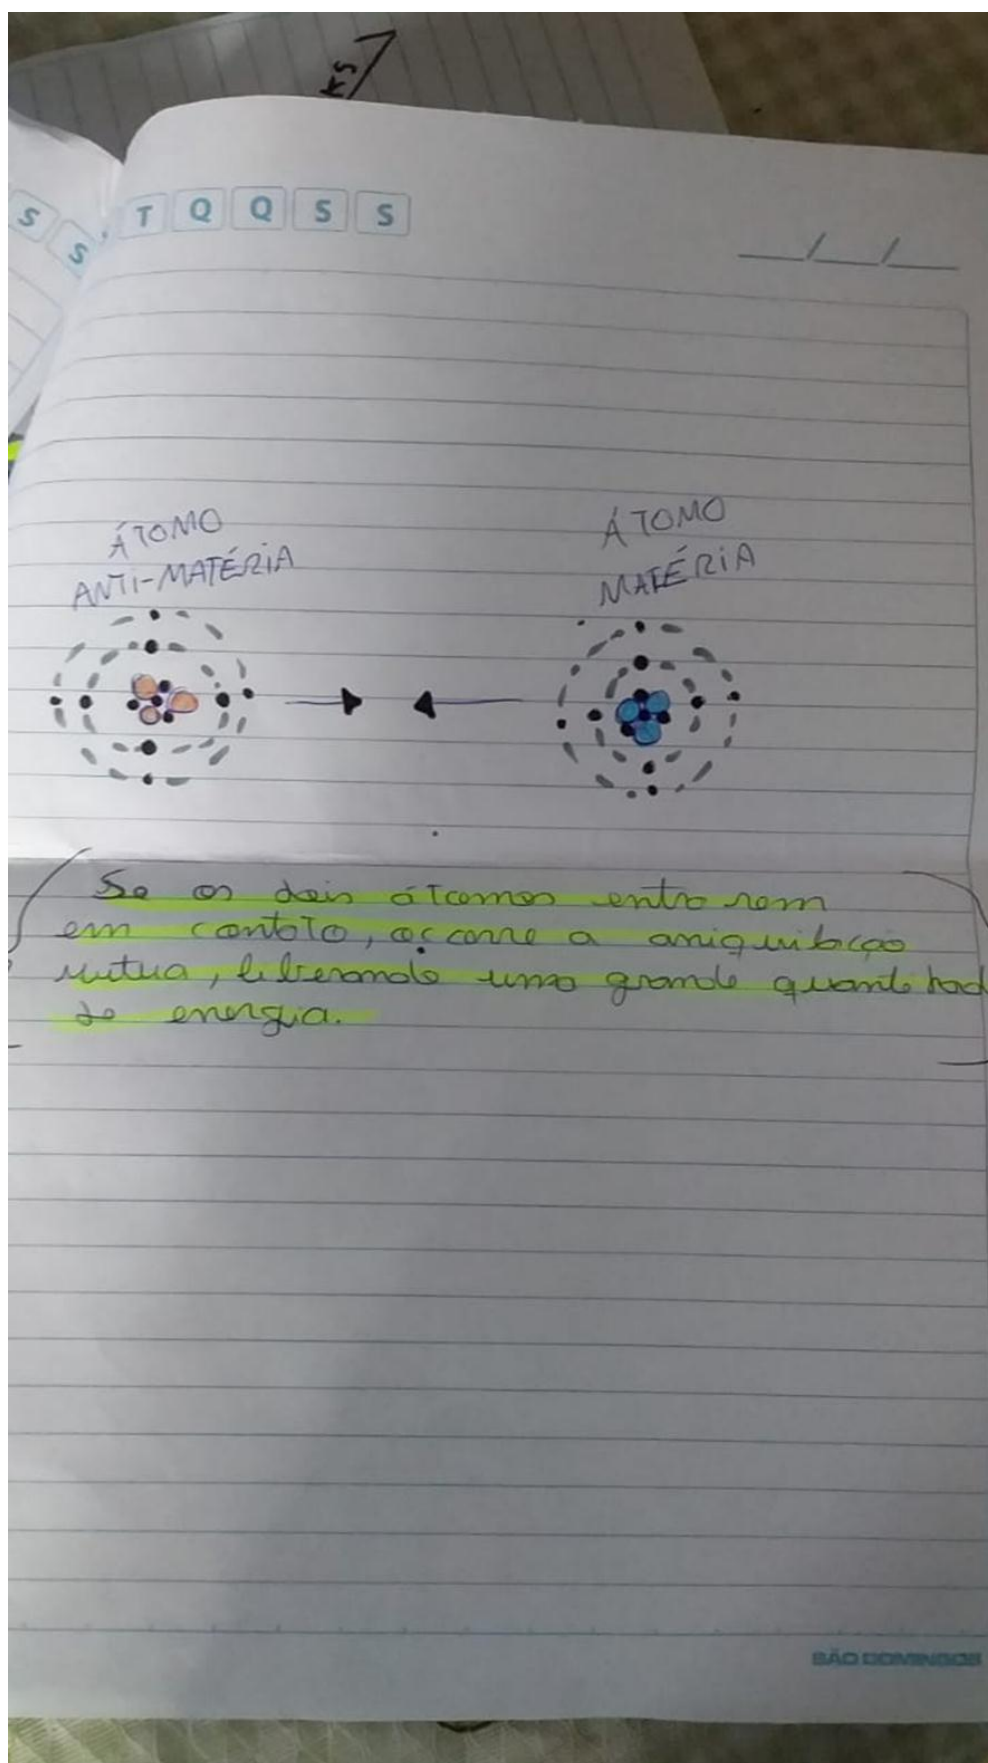 KS
S S
T Q Q S S
ÁTOMO
ANTI-MATÉRIA
ÁTOMO
MATÉRIA
Se os dois átomos entrorem
em contato, ocorre a aniquilação
mutua, liberando uma grande quantihad
de energia.
SÃO DOMINGOS